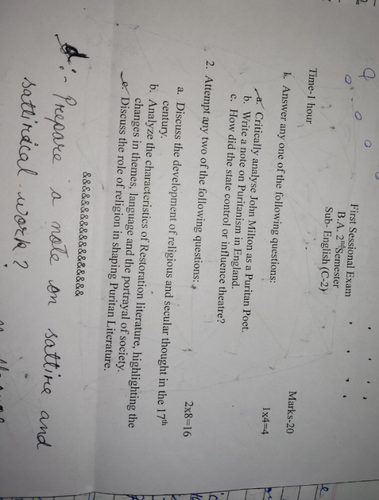 First Sessional Exam
B.A. 2nd Semester
Sub: English (C-2)
Time-1 hour
Marks-20
1. Answer any one of the following questions:
1x4=4
a. Critically analyse John Milton as a Puritan Poet.
b. Write a note on Puritanism in England.
c. How did the state control or influence theatre?
2. Attempt any two of the following questions:
2x8=16
a. Discuss the development of religious and secular thought in the 17th
century.
b. Analyze the characteristics of Restoration literature, highlighting the
changes in themes, language and the portrayal of society.
c. Discuss the role of religion in shaping Puritan Literature.
&&&&&&&&&&&&&&&&&&
d:- Prepare a note on sattire and
sattirical work?